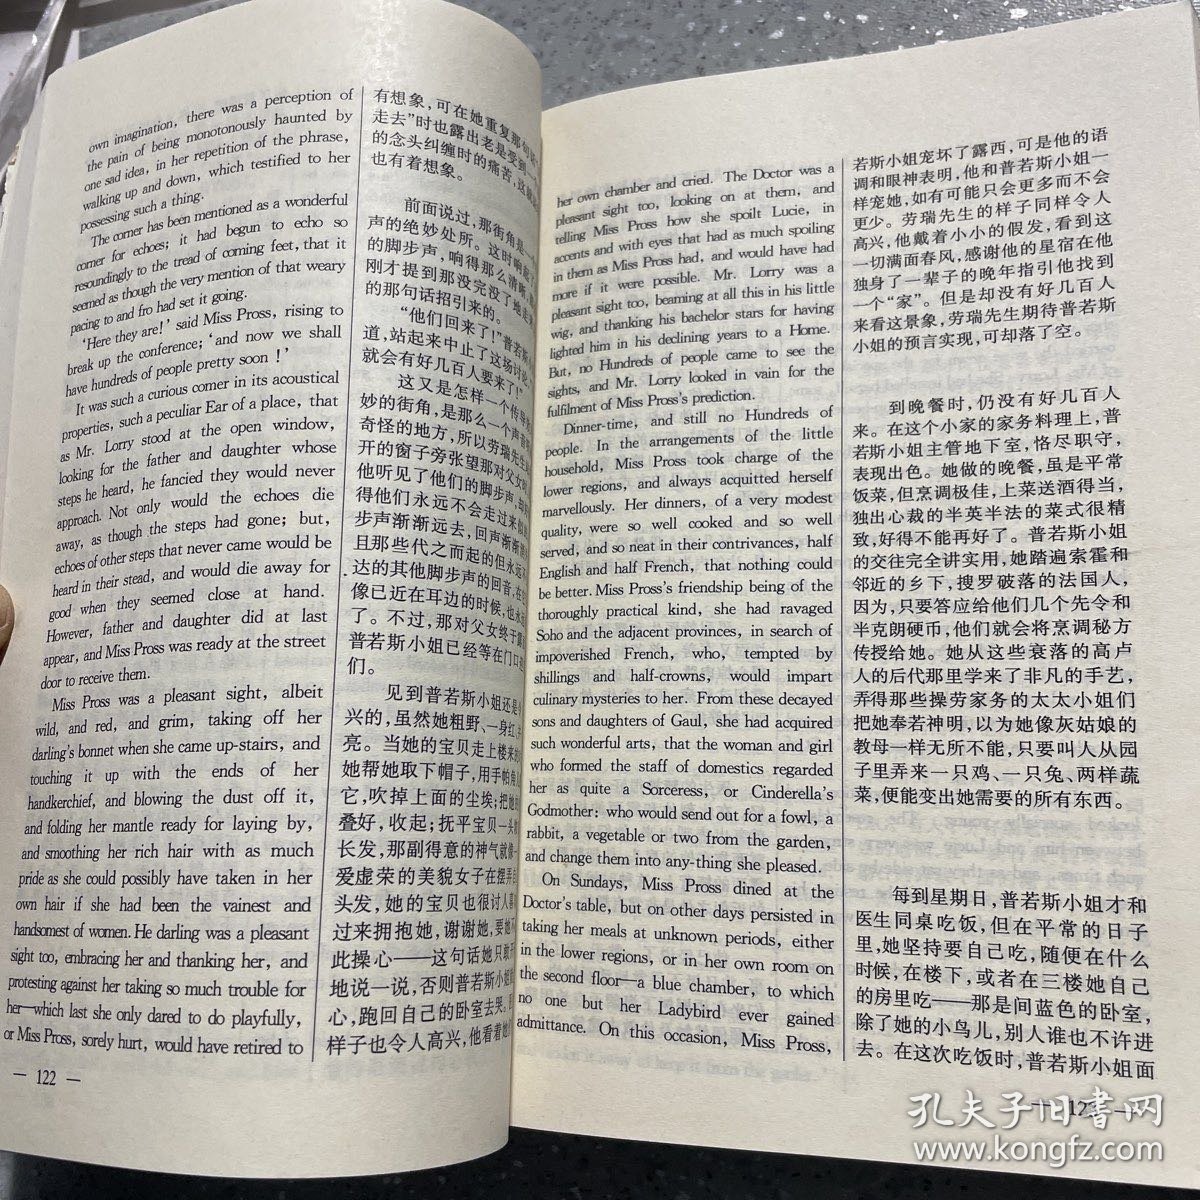 own imagination, there was a perception of
the pain of being monotonously haunted by
one sad idea, in her repetition of the phrase,
walking up and down, which testified to her
possessing such a thing.
The corner has been mentioned as a wonderful
corner for echoes; it had begun to echo so
resoundingly to the tread of coming feet, that it
seemed as though the very mention of that weary
pacing to and fro had set it going.
'Here they are!' said Miss Pross, rising to
break up the conference; 'and now we shall
have hundreds of people pretty soon !'
It was such a curious corner in its acoustical
properties, such a peculiar Ear of a place, that
as Mr. Lorry stood at the open window,
looking for the father and daughter whose
steps he heard, he fancied they would never
approach. Not only would the echoes die
away, as though the steps had gone; but,
echoes of other steps that never came would be
heard in their stead, and would die away for
good when they seemed close at hand.
However, father and daughter did at last
appear, and Miss Pross was ready at the street
door to receive them.
Miss Pross was a pleasant sight, albeit
wild, and red, and grim, taking off her
darling's bonnet when she came up-stairs, and
touching it up with the ends of her
handkerchief, and blowing the dust off it,
and folding her mantle ready for laying by,
and smoothing her rich hair with as much
pride as she could possibly have taken in her
own hair if she had been the vainest and
handsomest of women. He darling was a pleasant
sight too, embracing her and thanking her, and
protesting against her taking so much trouble for
her—which last she only dared to do playfully,
or Miss Pross, sorely hurt, would have retired to
— 122 —
有想象,可在她重复那句
走去”时也露出老是受到一
的念头纠缠时的痛苦,这
也有着想象。
前面说过,那街角是一
声的绝妙处所。这时响
的脚步声,响得那么清晰,
刚才提到那没完没了地走
的那句话招引来的。
“他们回来了!”普若斯
道,站起来中止了这场讨论,
就会有好几百人要来了!”
这又是怎样一个传导
妙的街角,是那么一个声音
奇怪的地方,所以劳瑞先生
开的窗子旁张望那对父女
他听见了他们的脚步声,
得他们永远不会走过来
步声渐渐远去,回声渐渐
且那些代之而起的但永远
达的其他脚步声的回音,在
像已近在耳边的时候,也永
了。不过,那对父女终于
普若斯小姐已经等在门口
们。
见到普若斯小姐还是
兴的,虽然她粗野、一身红、
亮。当她的宝贝走上楼来
她帮她取下帽子,用手帕角
它,吹掉上面的尘埃;把她
叠好,收起;抚平宝贝一头
长发,那副得意的神气就像一
爱虚荣的美貌女子在摆弄
头发,她的宝贝也很讨人喜
过来拥抱她,谢谢她,要她
此操心——这句话她只敢
地说一说,否则普若斯小姐
心,跑回自己的卧室去哭。
样子也令人高兴,他看着她
her own chamber and cried. The Doctor was a
pleasant sight too, looking on at them, and
telling Miss Pross how she spoilt Lucie, in
accents and with eyes that had as much spoiling
in them as Miss Pross had, and would have had
more if it were possible. Mr. Lorry was a
pleasant sight too, beaming at all this in his little
wig, and thanking his bachelor stars for having
lighted him in his declining years to a Home.
But, no Hundreds of people came to see the
sights, and Mr. Lorry looked in vain for the
fulfilment of Miss Pross's prediction.
Dinner-time, and still no Hundreds of
people. In the arrangements of the little
household, Miss Pross took charge of the
lower regions, and always acquitted herself
marvellously. Her dinners, of a very modest
quality, were so well cooked and so well
served, and so neat in their contrivances, half
English and half French, that nothing could
be better. Miss Pross's friendship being of the
thoroughly practical kind, she had ravaged
Soho and the adjacent provinces, in search of
impoverished French, who, tempted by
shillings and half-crowns, would impart
culinary mysteries to her. From these decayed
sons and daughters of Gaul, she had acquired
such wonderful arts, that the woman and girl
who formed the staff of domestics regarded
her as quite a Sorceress, or Cinderella's
Godmother: who would send out for a fowl, a
rabbit, a vegetable or two from the garden,
and change them into any-thing she pleased.
On Sundays, Miss Pross dined at the
Doctor's table, but on other days persisted in
taking her meals at unknown periods, either
in the lower regions, or in her own room on
the second floor—a blue chamber, to which
no one but her Ladybird ever gained
admittance. On this occasion, Miss Pross,
若斯小姐宠坏了露西,可是他的语
调和眼神表明,他和普若斯小姐一
样宠她,如有可能只会更多而不会
更少。劳瑞先生的样子同样令人
高兴,他戴着小小的假发,看到这
一切满面春风,感谢他的星宿在他
独身了一辈子的晚年指引他找到
一个“家”。但是却没有好几百人
来看这景象,劳瑞先生期待普若斯
小姐的预言实现,可却落了空。
到晚餐时,仍没有好几百人
来。在这个小家的家务料理上,普
若斯小姐主管地下室,恪尽职守,
表现出色。她做的晚餐,虽是平常
饭菜,但烹调极佳,上菜送酒得当,
独出心裁的半英半法的菜式很精
致,好得不能再好了。普若斯小姐
的交往完全讲实用,她踏遍索霍和
邻近的乡下,搜罗破落的法国人,
因为,只要答应给他们几个先令和
半克朗硬币,他们就会将烹调秘方
传授给她。她从这些衰落的高卢
人的后代那里学来了非凡的手艺,
弄得那些操劳家务的太太小姐们
把她奉若神明,以为她像灰姑娘的
教母一样无所不能,只要叫人从园
子里弄来一只鸡、一只兔、两样蔬
菜,便能变出她需要的所有东西。
每到星期日,普若斯小姐才和
医生同桌吃饭,但在平常的日子
里,她坚持要自己吃,随便在什么
时候,在楼下,或者在三楼她自己
的房里吃——那是间蓝色的卧室,
除了她的小鸟儿,别人谁也不许进
去。在这次吃饭时,普若斯小姐面
— 123 —
孔夫子旧書网
www.kongfz.com